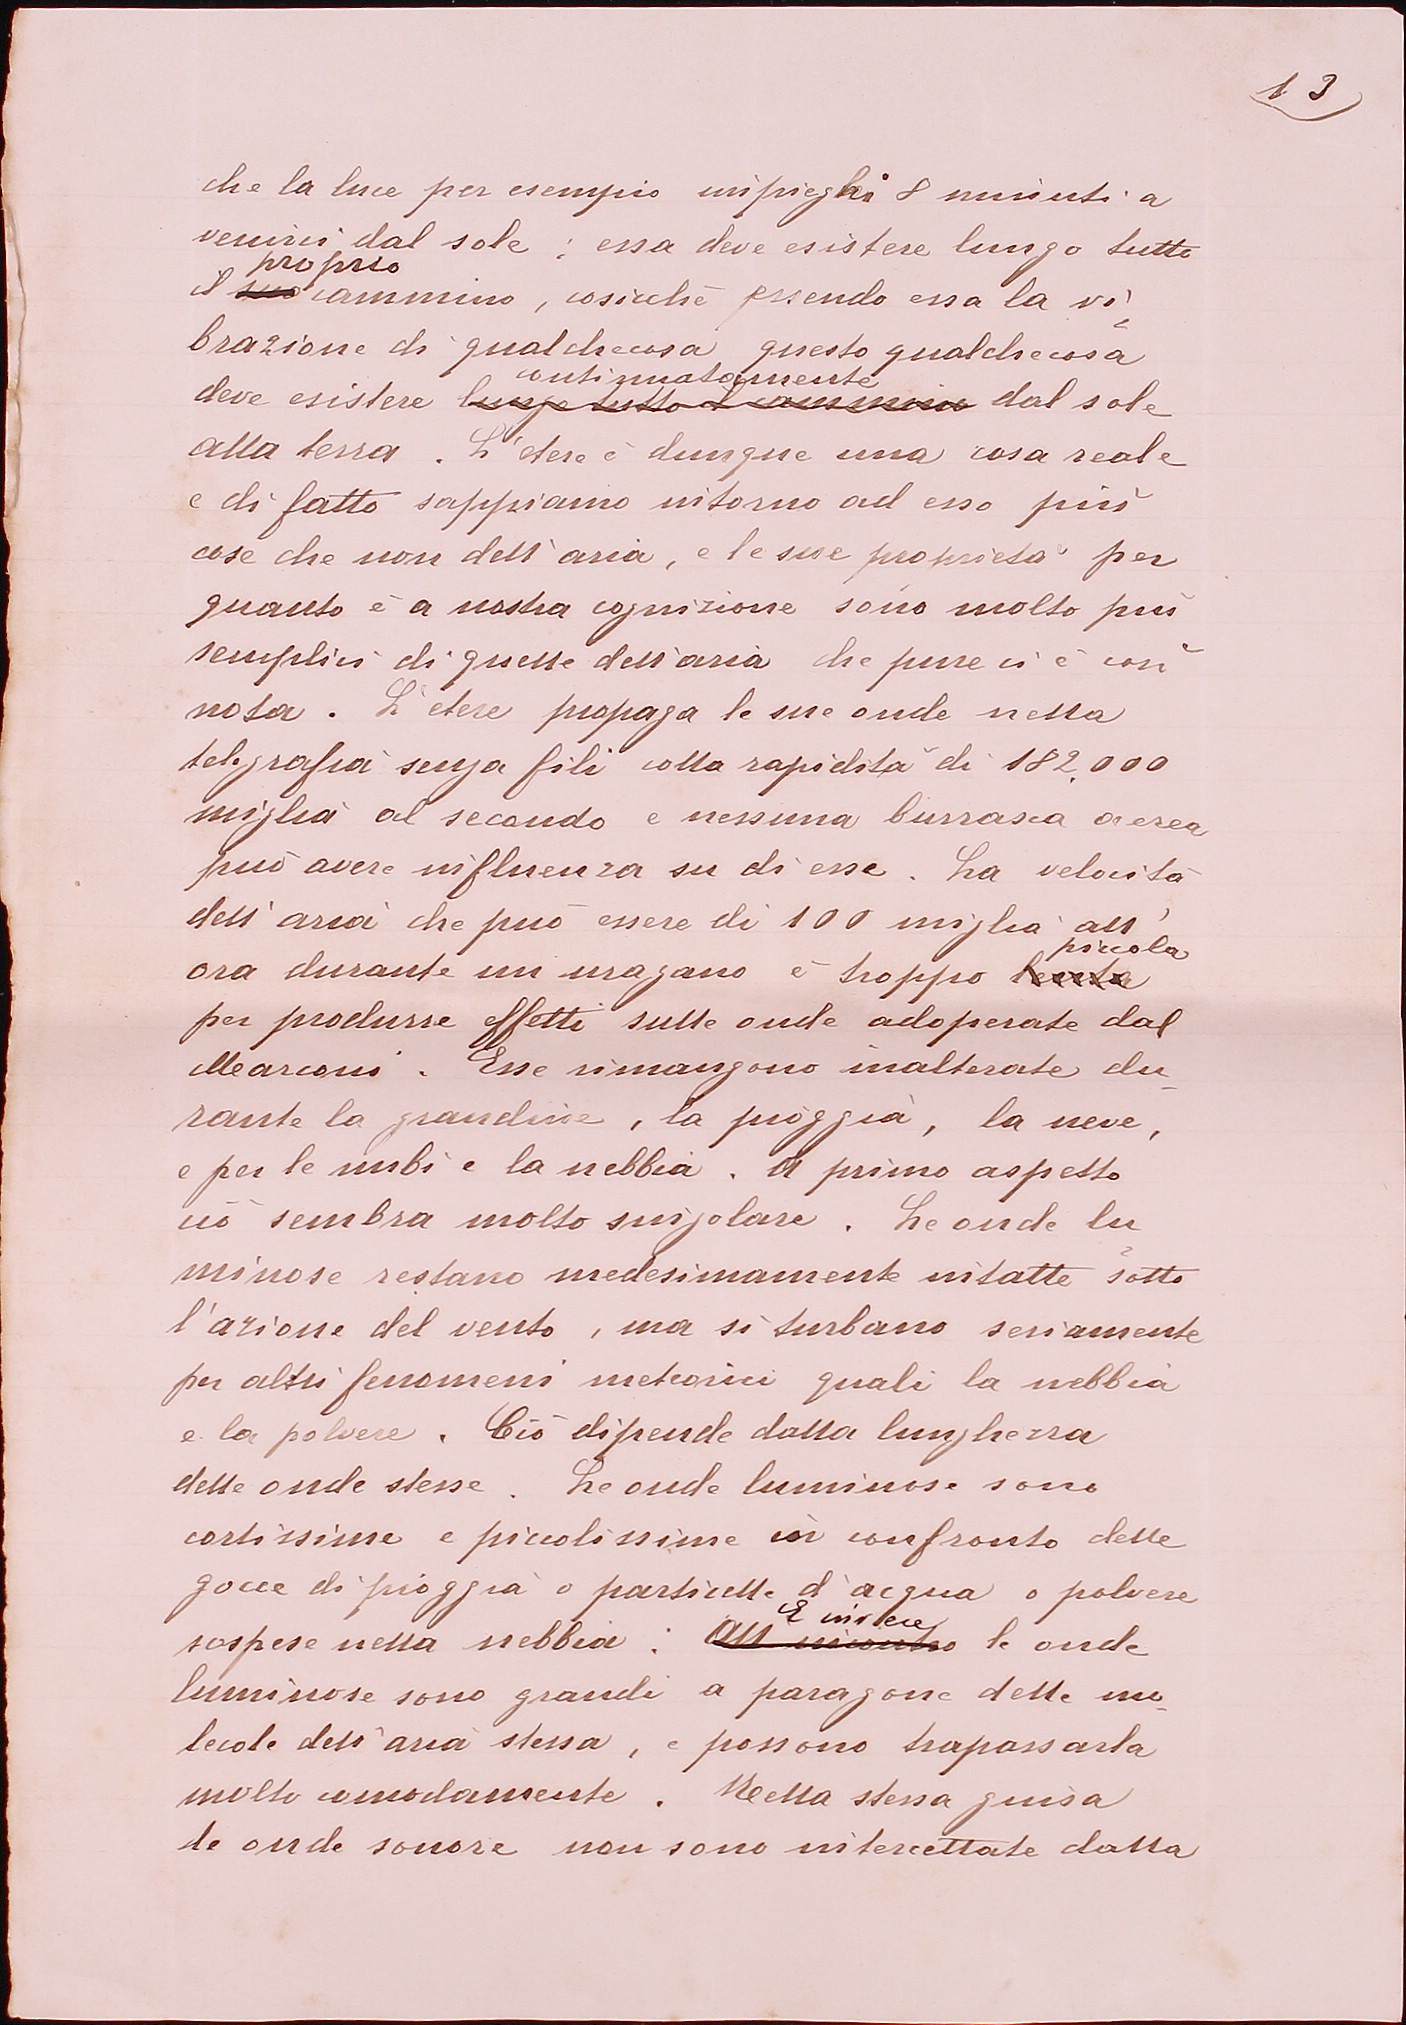 13
che la luce per esempio impieghi 8 minuti a
venirci dal sole ; essa deve esistere lungo tutto
proprio
il suo cammino , cosicchè essendo essa la vi-
brazione di qualchecosa questo qualchecosa
continuatamente
deve esistere lungo tutto il cammino dal sole
alla terra . L'etere è dunque una cosa reale
e di fatto sappiamo intorno ad esso più
cose che non dell'aria , e le sue proprietà per
quanto è a nostra cognizione sono molto più
semplici di quelle dell'aria che pure ci è così
nota . L'etere propaga le sue onde nella
telegrafia senza fili colla rapidità di 182.000
miglia al secondo e nessuna burrasca aerea
può avere influenza su di esse . La velocità
dell'aria che può essere di 100 miglia all'
piccola
ora durante un uragano è troppo lenta
per produrre effetti sulle onde adoperate dal
Marconi . Esse rimangono inalterate du-
rante la grandine , la pioggia , la neve ,
e per le nubi e la nebbia . A primo aspetto
ciò sembra molto singolare . Le onde lu-
minose restano medesimamente intatte sotto
l'azione del vento , ma si turbano seriamente
per altri fenomeni meteorici quali la nebbia
e la polvere . Ciò dipende dalla lunghezza
delle onde stesse . Le onde luminose sono
cortissime e piccolissime in confronto delle
gocce di pioggia o particelle d'acqua o polvere
E invece
sospese nella nebbia : All'incontro le onde
luminose sono grandi a paragone delle mo-
lecole dell'aria stessa , e possono trapassarla
molto comodamente . Nella stessa guisa
le onde sonore non sono intercettate dalla